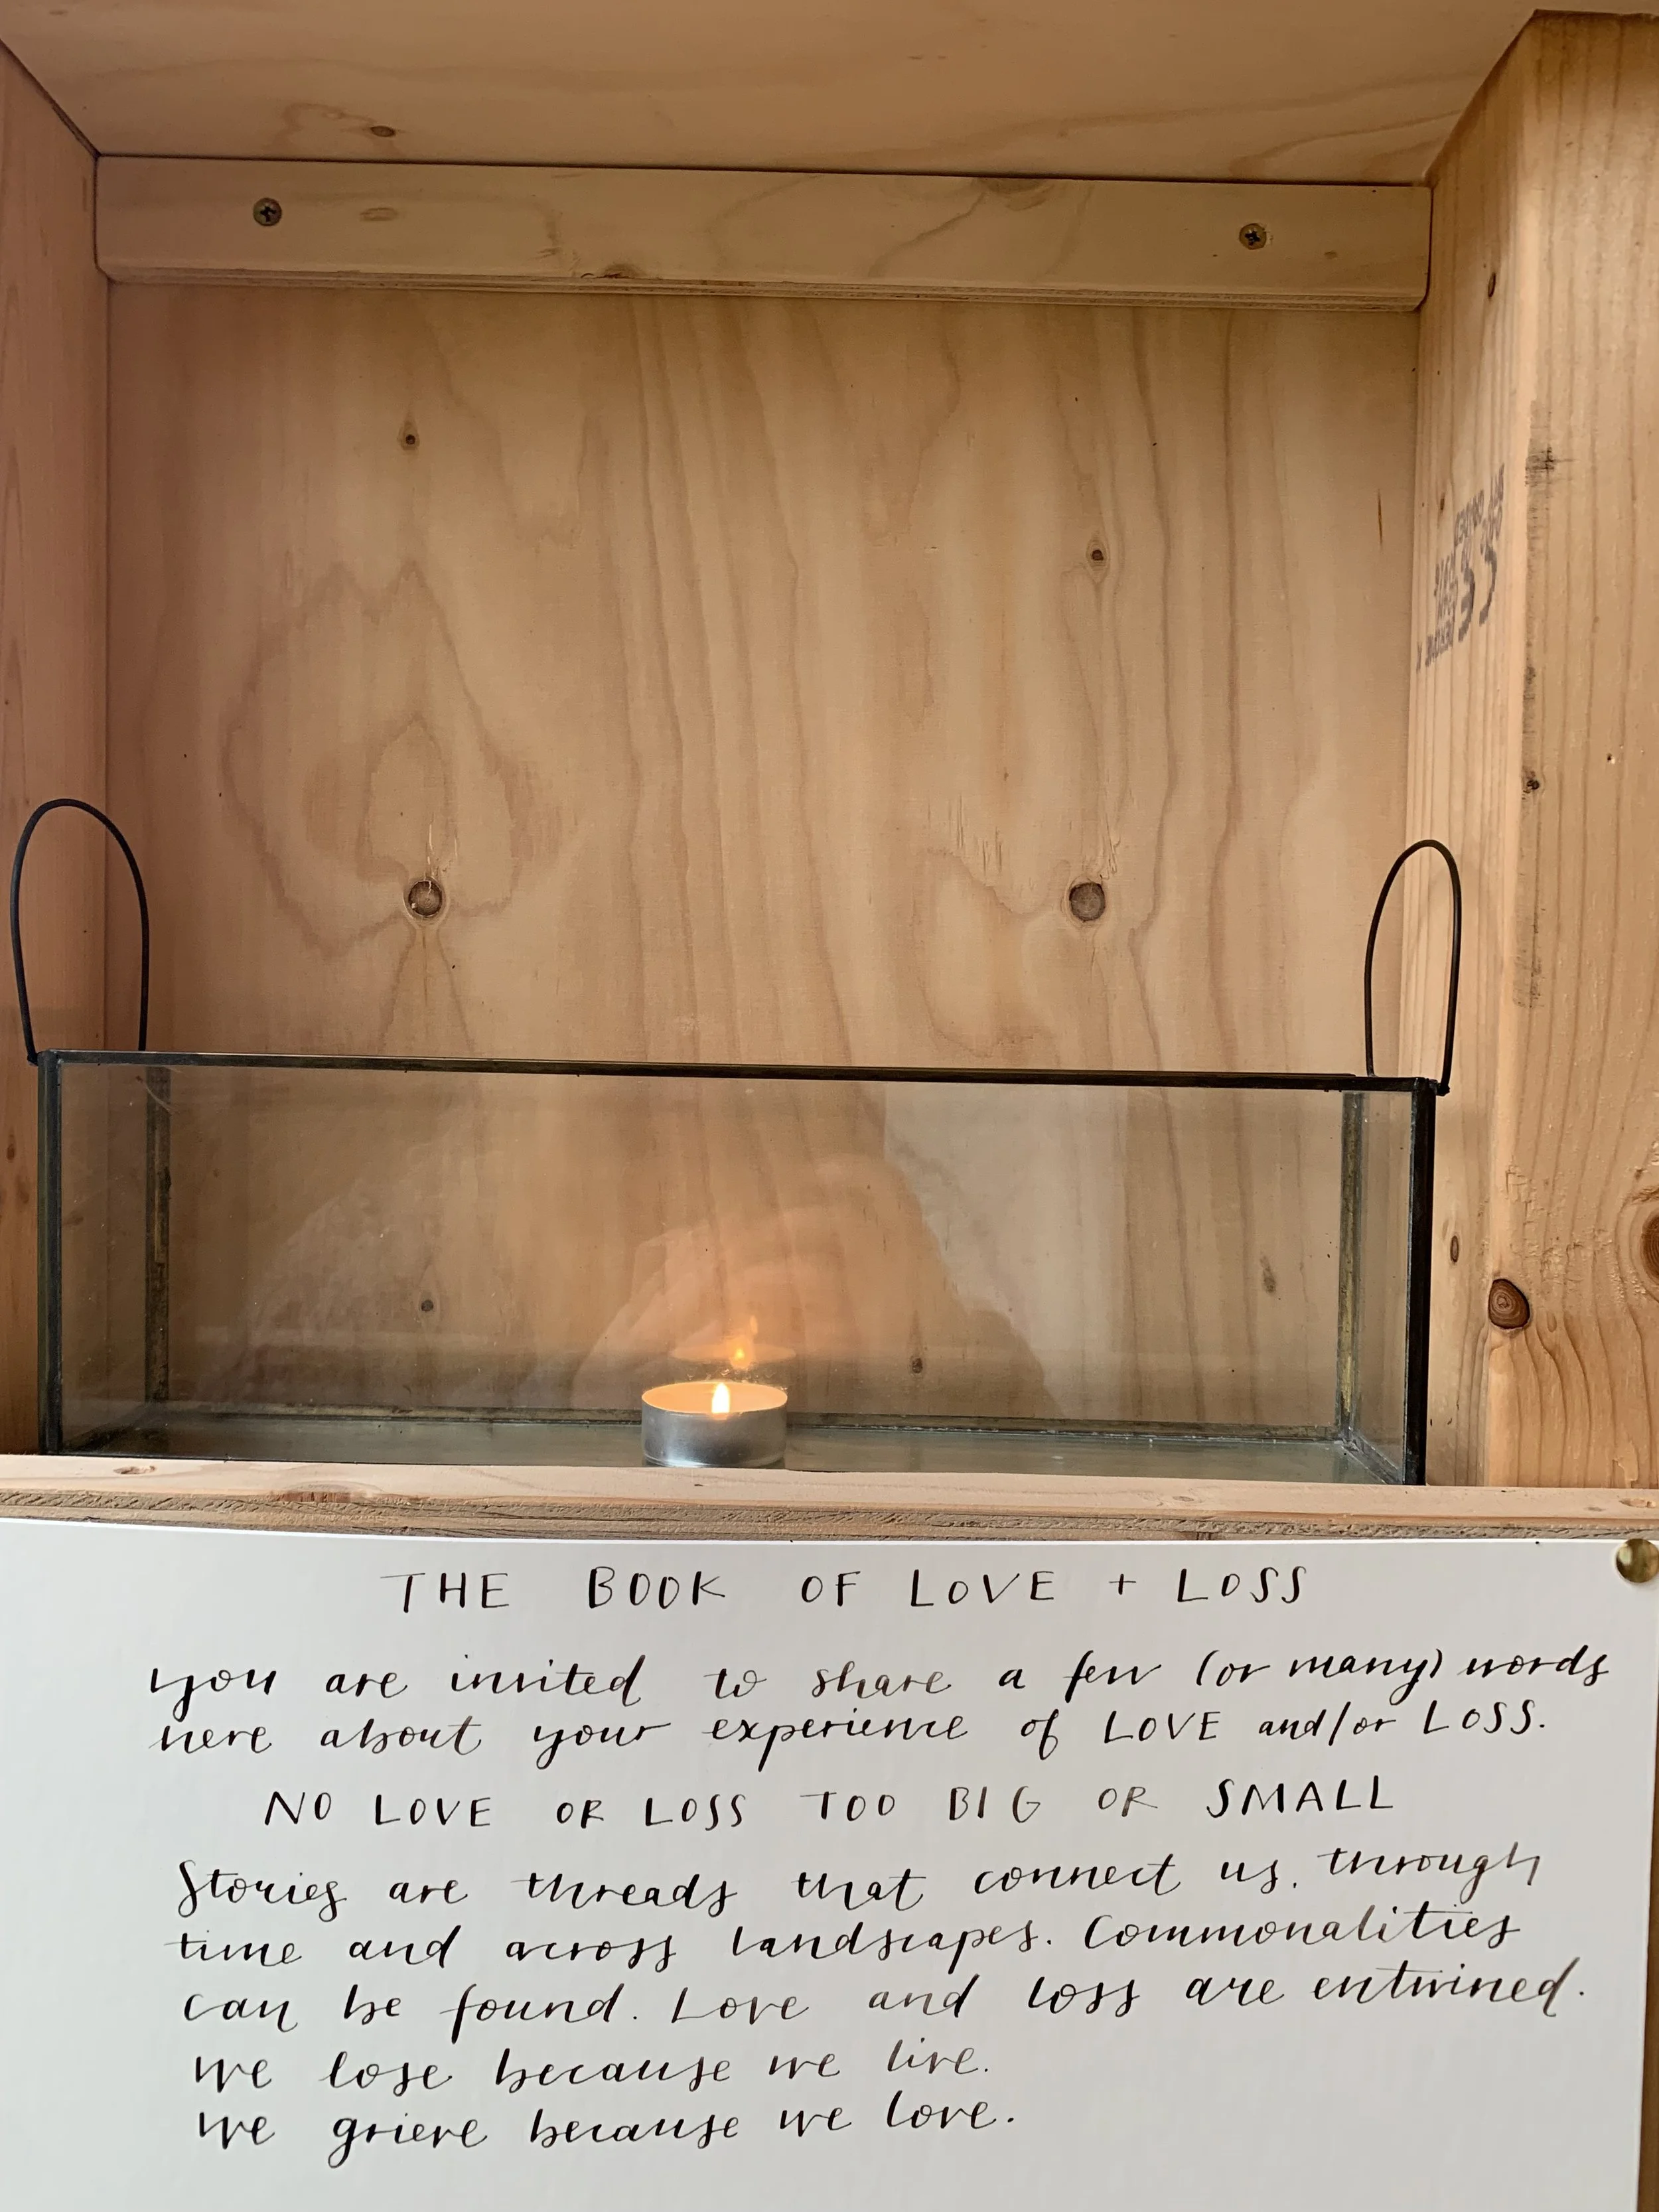 THE BOOK OF LOVE + LOSS
you are invited to share a few (or many) words
here about your experience of LOVE and/or LOSS.
NO LOVE OR LOSS TOO BIG OR SMALL
Stories are threads that connect us, through
time and across landscapes. Commonalities
can be found. Love and loss are entwined.
we lose because we live.
we grieve because we love.
CE